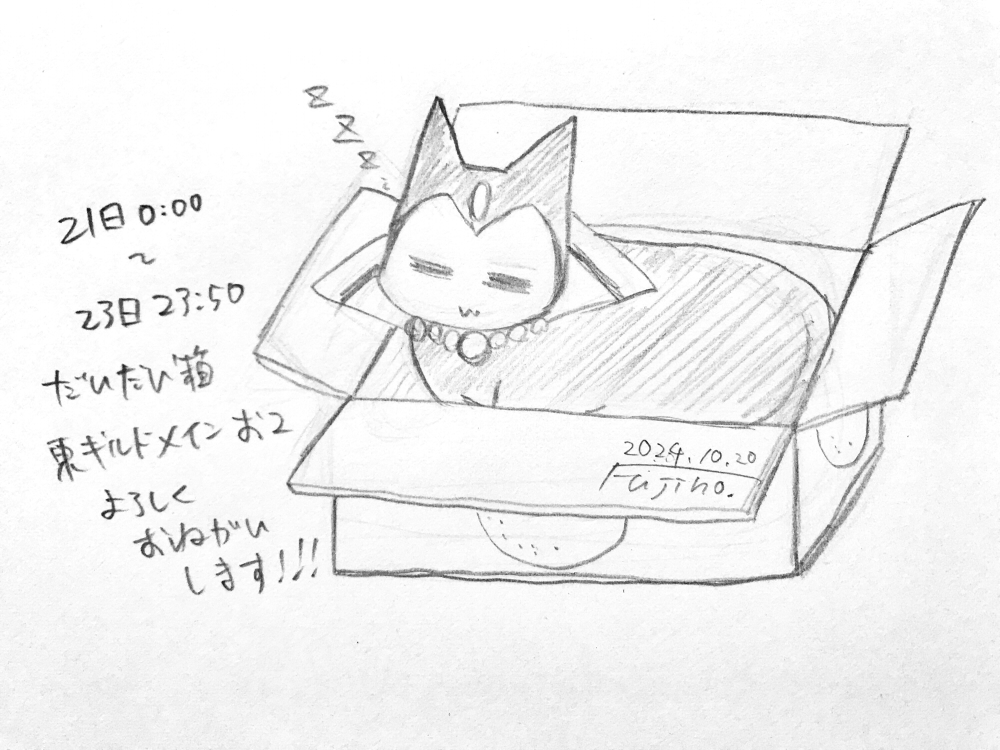 z
z
z
21日 0:00
~
23日 23:50
だいたい箱
東ギルドメイン お2
よろしく
おねがい
します!!!
2024.10.20
Fujiho.